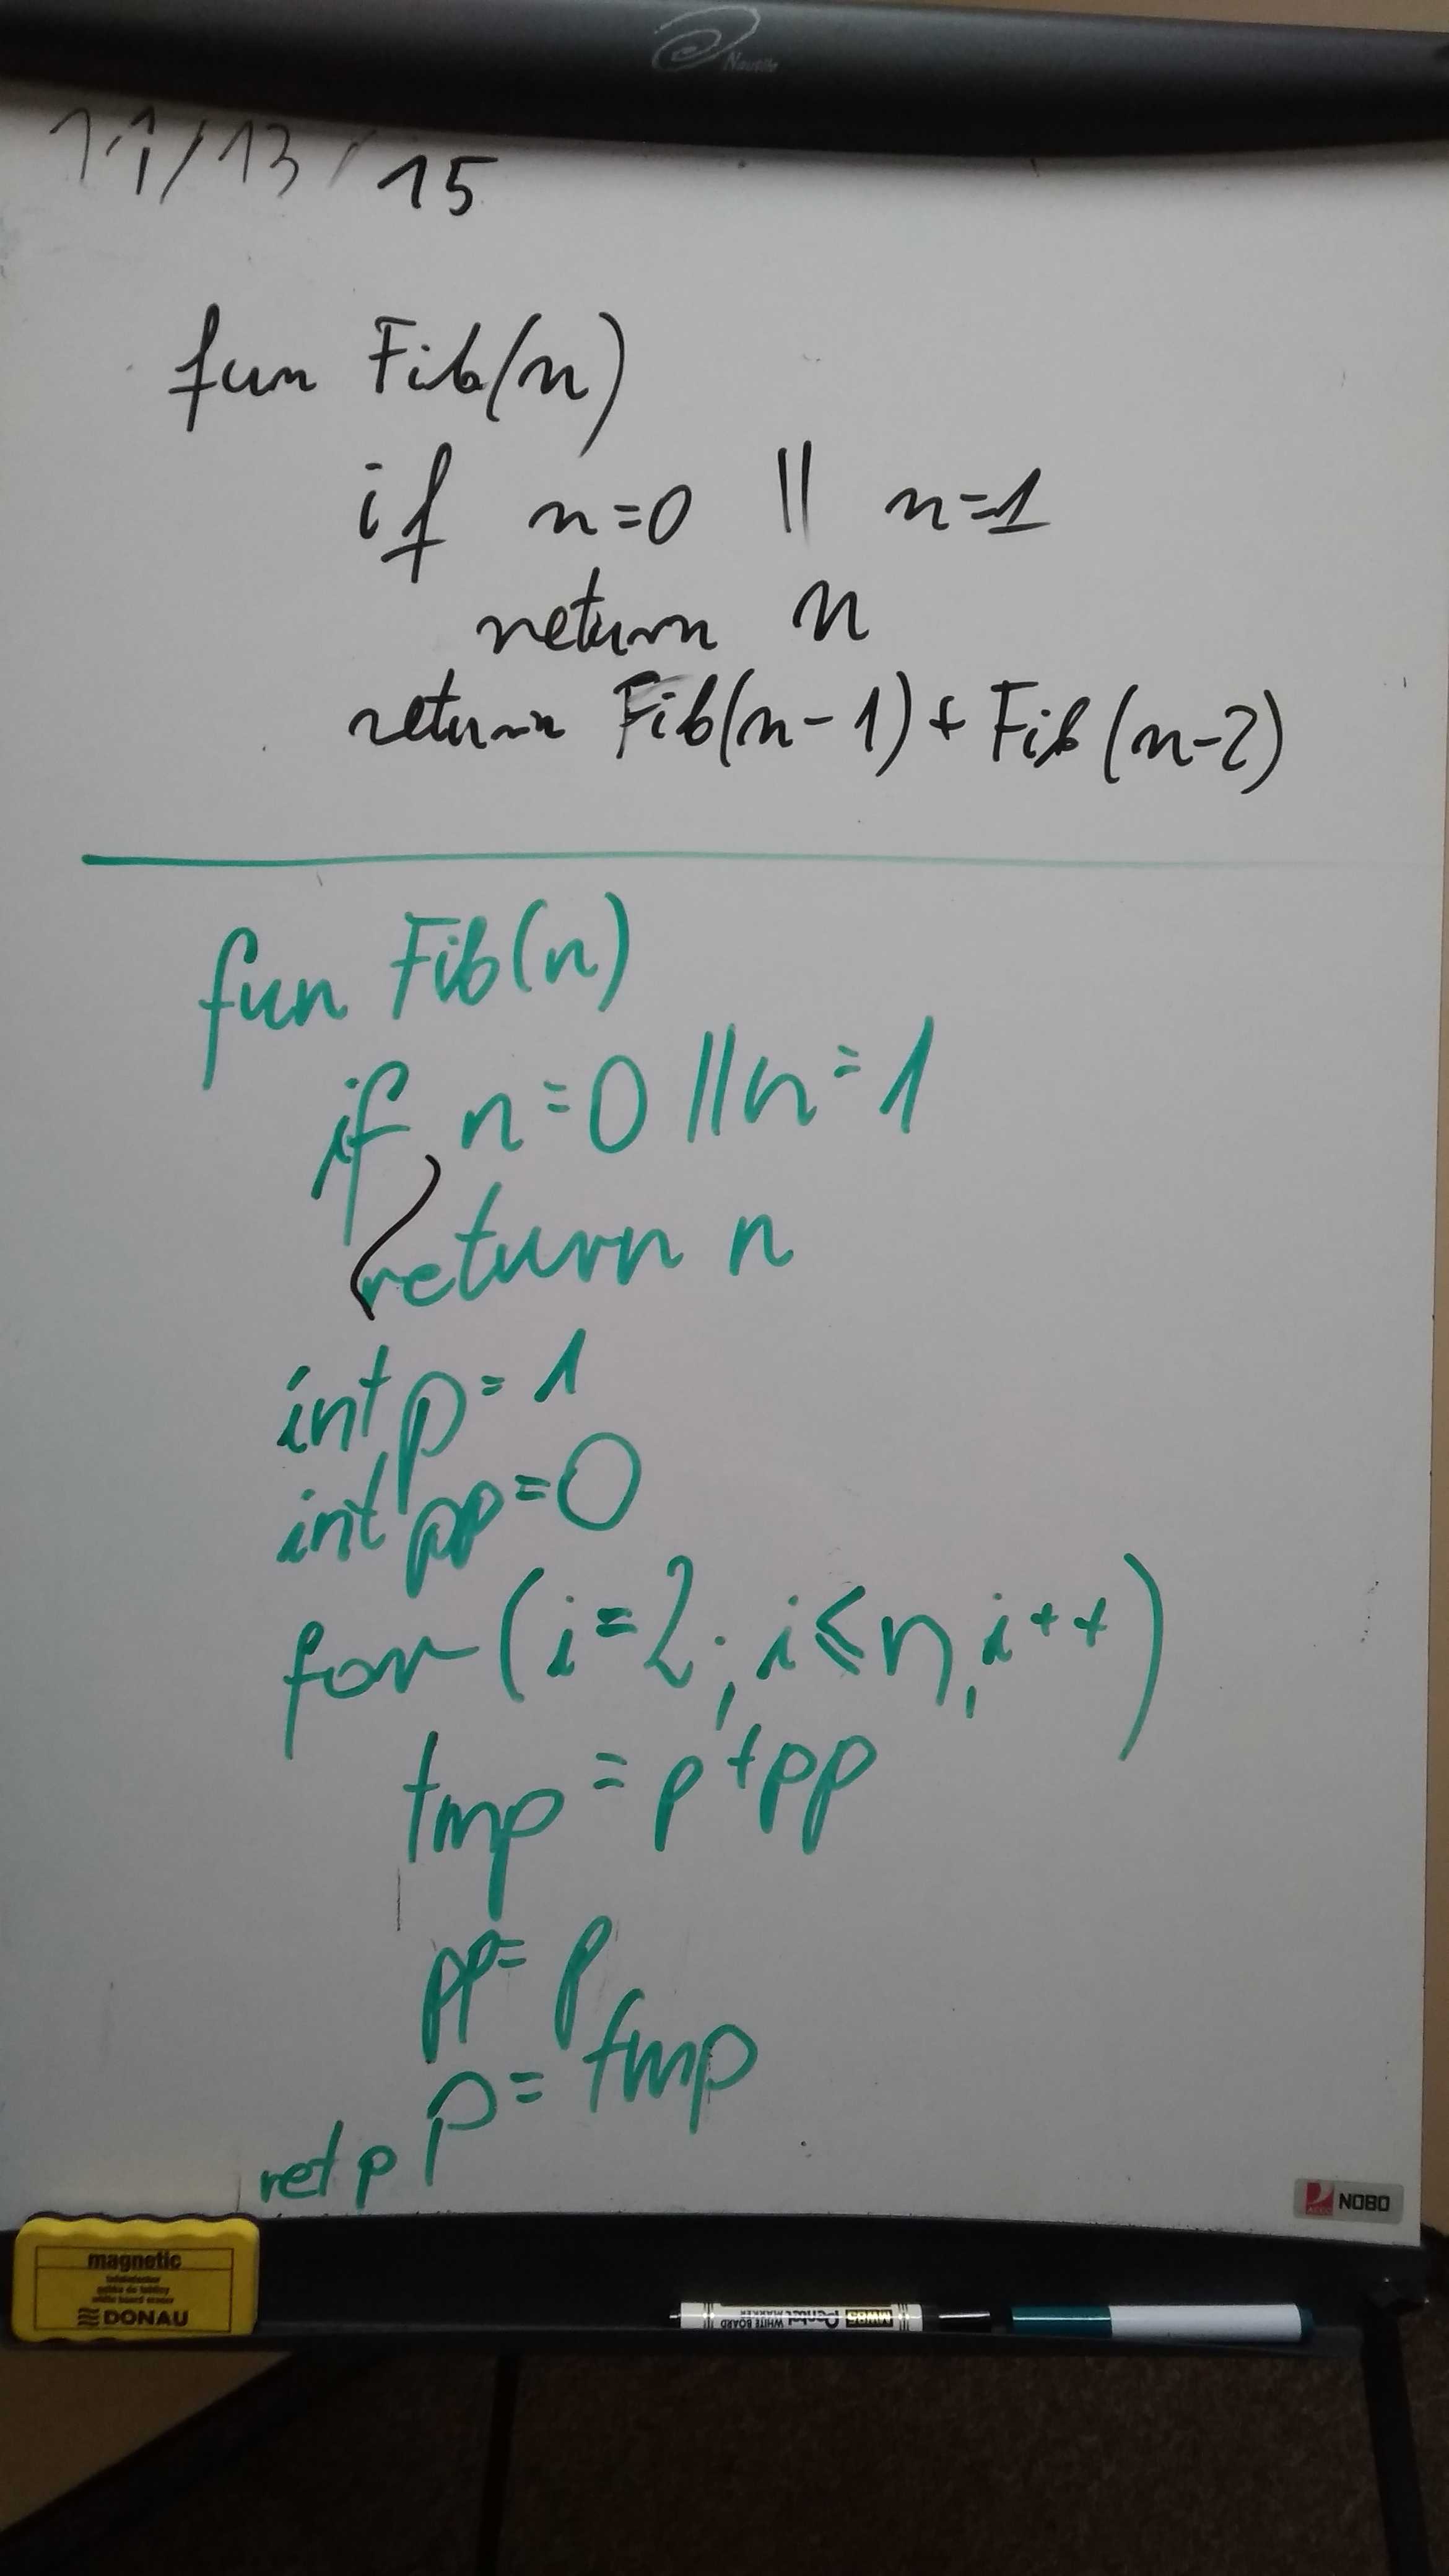 Nautile
11/13/15
fun Fib(n)
if n=0 || n=1
return n
return Fib(n-1) + Fib(n-2)
fun Fib(n)
if n=0 || n=1
return n
int p=1
int pp=0
for (i=2; i≤n, i++)
tmp = p+pp
pp= p
p= tmp
ret p
NOBO
magnetic
DONAU
Pentel MW85
WHITE BOARD MARKER